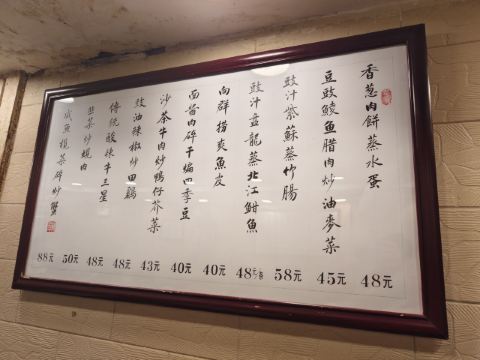 香葱肉餅蒸水蛋 48元
豆豉鯪魚腊肉炒油麥菜 45元
豉汁紫蘇蒸竹腸 58元
豉汁盘龍蒸北江鮰魚 48元/条
向群捞爽魚皮 40元
面酱肉碎干煸四季豆 40元
沙茶牛肉炒鴨仔芥菜 43元
豉油辣椒炒田鷄 48元
傳統酸辣牛三星 48元
韭菜炒蜆肉 50元
咸魚欖菜碎炒蟹 88元